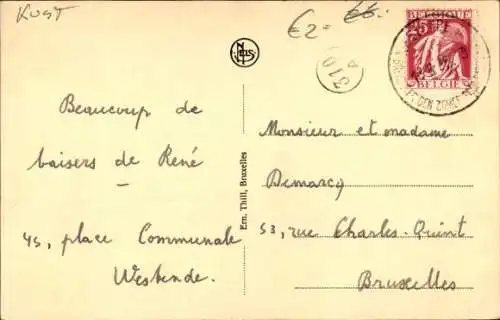 Kust
€2=
BELGIQUE
BELGIË
Beaucoup de
baisers de René
45, place Communale
Westende.
Ern. Thill, Bruxelles
Monsieur et madame
Demarcq
53, rue Charles-Quint
Bruxelles